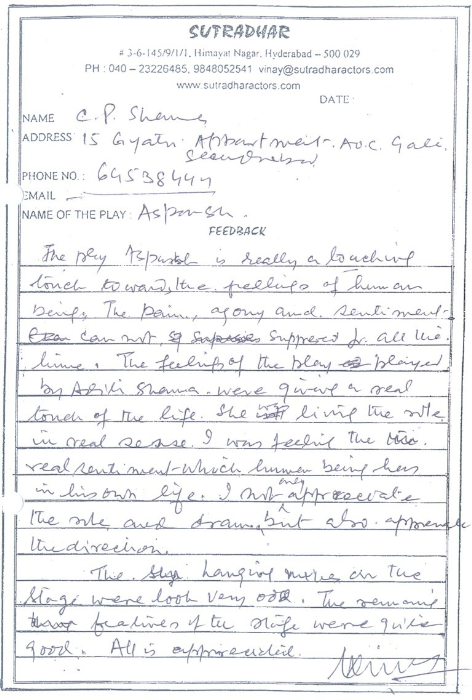 SUTRADHAR
# 3-6-145/9/1/1, Himayat Nagar, Hyderabad – 500 029
PH : 040 – 23226485, 9848052541 vinay@sutradharactors.com
www.sutradharactors.com
DATE :
NAME C. P. Sharma
ADDRESS 15 Gyatri Appartment. A.O.C. Gate.
Secundrabad
PHONE NO.: 64538444
EMAIL
NAME OF THE PLAY : Asparsh.
FEEDBACK
The play Asparsh is really a touching
touch towards the feelings of human
being. The pain, agony and sentiment
can not, suppered for all the
time. The feelings of the play played
by Aditi Sharma were giving a real
touch of the life. She living the role
in real sense. I was feeling the
real sentiment which human being has
in his own life. I not only appreceate
the role and drama, but also appreceate
the direction.
The hanging mixes on the
stage were look very odd. The remaing
features of the stage were quite
good. All is appreceated.